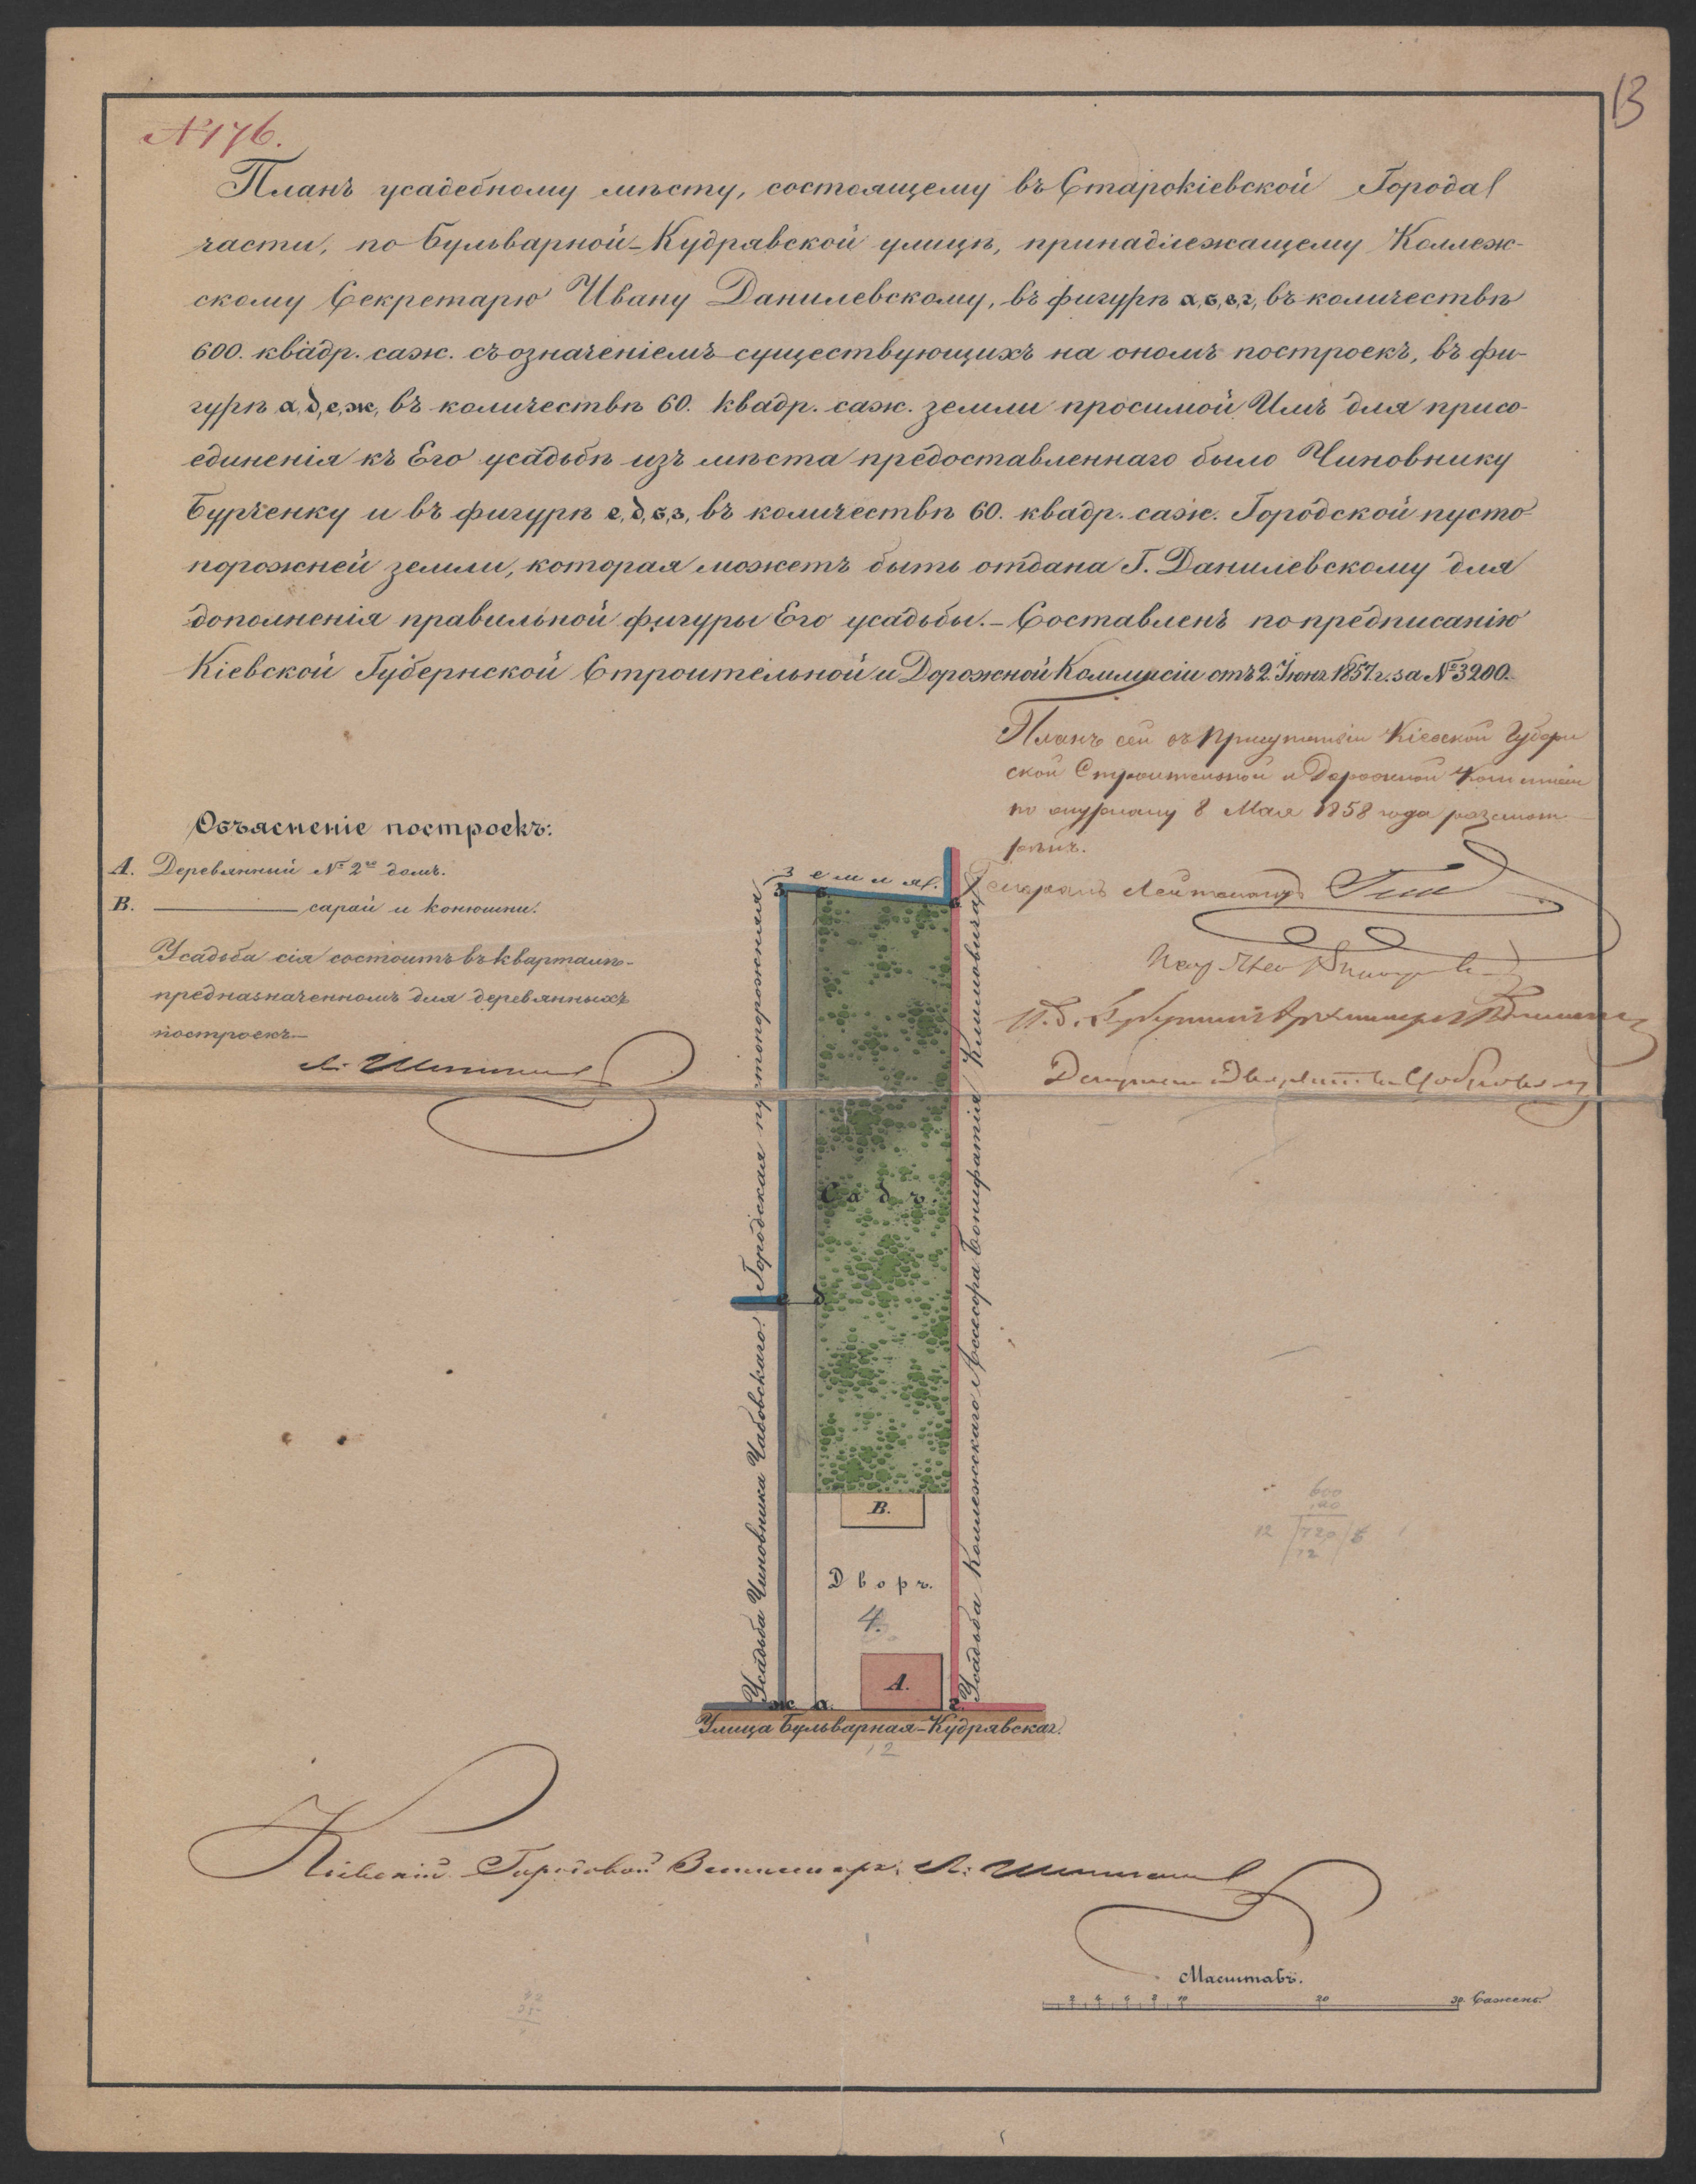 13
№176.
Планъ усадебному мѣсту, состоящему въ Старокіевской Города
части, по Бульварной-Кудрявской улицѣ, принадлежащему Коллеж-
скому Секретарю Ивану Данилевскому, въ фигурѣ а,б,в,г, въ количествѣ
600. квадр. саж. съ означеніемъ существующихъ на ономъ построекъ, въ фи-
гурѣ а,д,е,ж, въ количествѣ 60. квадр. саж. земли просимой Имъ для присо-
единенія къ Его усадьбѣ изъ мѣста предоставленнаго было Чиновнику
Бурченку и въ фигурѣ е,д,б,з, въ количествѣ 60. квадр. саж. Городской пусто-
порожней земли, которая можетъ быть отдана Г. Данилевскому для
дополненія правильной фигуры Его усадьбы.- Составленъ по предписанію
Кіевской Губернской Строительной и Дорожной Коммисіи отъ 2. Іюня 1857 г. за №3200.
Планъ сей въ Присутствіи Кіевской Губерн
ской Строительной и Дорожной Коммисіи
по журналу 8 Мая 1858 года разсмот-
рѣнъ.
Генералъ Лейтенантъ
Объясненіе построекъ:
А. Деревянный № 2го домъ.
В. ——— сарай и конюшни.
Усадьба сія состоитъ въ кварталѣ-
предназначенномъ для деревянныхъ
построекъ.-
И.д. Губернскій Архитекторъ
Земля.
з б в
Городская пустопорожняя
Усадьба Коллежскаго Ассесора Бонифатія Климовича
Садъ.
е д
Усадьба Чиновника Чабовскаго.
В.
Дворъ.
4.
А.
ж а г
Улица Бульварная-Кудрявская.
12
600
120
12 720
12
Кіевскій Городовой Землемеръ
Масштабъ.
2 4 6 8 10 20 30. Сажень.